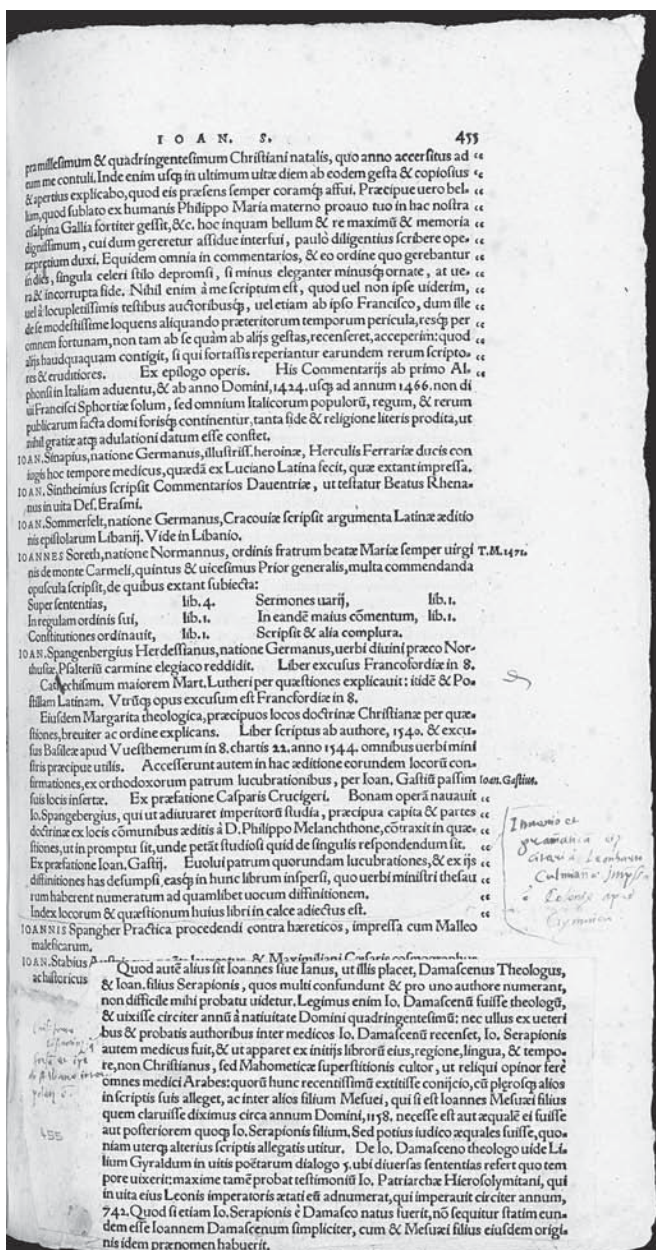 IOAN. S. 455
pra millesimum & quadringentesimum Christiani natalis, quo anno accersitus ad
eum me contuli. Inde enim usq̃ in ultimum uitæ diem ab eodem gesta & copiosius
& apertius explicabo, quod eis præsens semper coramq̃ affui. Præcipue uero bel-
lum, quod sublato ex humanis Philippo Maria materno proauo tuo in hac nostra
cisalpina Gallia fortiter gessit, &c. hoc inquam bellum & re maximũ & memoria
dignissimum, cui dum gereretur assidue interfui, paulò diligentius scribere ope-
ræpretium duxi. Equidem omnia in commentarios, & eo ordine quo gerebantur
in dies, singula celeri stilo depromsi, si minus eleganter minusq̃ ornate, at ue-
ra & incorrupta fide. Nihil enim à me scriptum est, quod uel non ipse uiderim,
uel à locupletissimis testibus auctoribusq̃, uel etiam ab ipso Francisco, dum ille
de se modestissime loquens aliquando præteritorum temporum pericula, resq̃ per
omnem fortunam, non tam ab se quàm ab alijs gestas, recenseret, acceperim: quod
alijs haudquaquam contigit, si qui fortassis reperiantur earundem rerum scripto-
res & eruditiores. Ex epilogo operis. His Commentarijs ab primo Al-
phonsi in Italiam aduentu, & ab anno Domini, 1424. usq̃ ad annum 1466. non di
ui Francisci Sphortiæ solum, sed omnium Italicorum populorũ, regum, & rerum
publicarum facta domi forisq̃ continentur, tanta fide & religione literis prodita, ut
nihil gratiæ atq̃ adulationi datum esse constet.
IOAN. Sinapius, natione Germanus, illustriss. heroinæ, Herculis Ferrariæ ducis con
iugis hoc tempore medicus, quædã ex Luciano Latina fecit, quæ extant impressa.
IOAN. Sintheimius scripsit Commentarios Dauentriæ, ut testatur Beatus Rhena-
nus in uita Des. Erasmi.
IOAN. Sommerfelt, natione Germanus, Cracouiæ scripsit argumenta Latinæ æditio
nis epistolarum Libanij. Vide in Libanio.
IOANNES Soreth, natione Normannus, ordinis fratrum beatæ Mariæ semper uirgi T.M.1471.
nis de monte Carmeli, quintus & uicesimus Prior generalis, multa commendanda
opuscula scripsit, de quibus extant subiecta:
Super sententias, lib. 4. Sermones uarij, lib. 1.
In regulam ordinis sui, lib. 1. In eandẽ maius cõmentum, lib. 1.
Constitutiones ordinauit, lib. 1. Scripsit & alia complura.
IOAN. Spangenbergius Herdessianus, natione Germanus, uerbi diuini præco Nor-
thusiæ, Psalteriũ carmine elegiaco reddidit. Liber excusus Francofordiæ in 8.
Catechismum maiorem Mart. Lutheri per quæstiones explicauit: itidẽ & Po-
stillam Latinam. Vtrũq̃ opus excusum est Francfordiæ in 8.
Eiusdem Margarita theologica, præcipuos locos doctrinæ Christianæ per quæ-
stiones, breuiter ac ordine explicans. Liber scriptus ab authore, 1540. & excu-
sus Basileæ apud Vuesthemerum in 8. chartis 22. anno 1544. omnibus uerbi mini
stris præcipue utilis. Accesserunt autem in hac æditione eorundem locorũ con-
firmationes, ex orthodoxorum patrum lucubrationibus, per Ioan. Gastiũ passim Ioan. Gastius.
suis locis insertæ. Ex præfatione Casparis Crucigeri. Bonam operã nauauit
Io. Spangebergius, qui ut adiuuaret imperitorũ studia, præcipua capita & partes
doctrinæ ex locis cõmunibus æditis à D. Philippo Melanchthone, cõtraxit in quæ-
stiones, ut in promptu sit, unde petãt studiosi quid de singulis respondendum sit.
Ex præfatione Ioan. Gastij. Euolui patrum quorundam lucubrationes, & ex ijs
diffinitiones has desumpsi, easq̃ in hunc librum inspersi, quo uerbi ministri thesau
rum haberent numeratum ad quamlibet uocum diffinitionem.
Index locorum & quæstionum huius libri in calce adiectus est.
IOANNIS Spangher Practica procedendi contra hæreticos, impressa cum Malleo
maleficarum.
IOAN. Stabius & Maximiliani Cæsaris
ac historicus
Quod autẽ alius sit Ioannes siue Ianus, ut illis placet, Damascenus Theologus,
& Ioan. filius Serapionis, quos multi confundunt & pro uno authore numerant,
non difficile mihi probatu uidetur. Legimus enim Io. Damascenũ fuisse theologũ,
& uixisse circiter annũ à natiuitate Domini quadringentesimũ: nec ullus ex ueteri
bus & probatis authoribus inter medicos Io. Damascenũ recenset, Io. Serapionis
autem medicus fuit, & ut apparet ex initijs librorũ eius, regione, lingua, & tempo-
re, non Christianus, sed Mahometicæ superstitionis cultor, ut reliqui opinor ferè
omnes medici Arabes: quorũ hunc recentissimũ extitisse conijcio, cũ plerosq̃ alios
in scriptis suis alleget, ac inter alios filium Mesuei, qui si est Ioannes Mesuæi filius
quem claruisse diximus circa annum Domini, 1158. necesse est aut æqualẽ ei fuisse
aut posteriorem quoq̃ Io. Serapionis filium. Sed potius iudico æquales fuisse, quo-
niam uterq̃ alterius scriptis allegatis utitur. De Io. Damasceno theologo uide Li-
lium Gyraldum in uitis poëtarum dialogo 5. ubi diuersas sententias refert quo tem
pore uixerit: maxime tamẽ probat testimoniũ Io. Patriarchæ Hierosolymitani, qui
in uita eius Leonis imperatoris ætati eũ adnumerat, qui imperauit circiter annum,
742. Quod si etiam Io. Serapionis è Damasco natus fuerit, nõ sequitur statim eun-
dem esse Ioannem Damascenum simpliciter, cum & Mesuæi filius eiusdem origi-
nis idem prænomen habuerit.
455